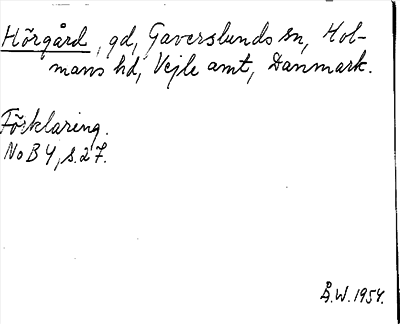 Hörgård, gd, Gaverslunds sn, Hol-
mans hd, Vejle amt, Danmark.
Förklaring.
NoB 4, s. 27.
Å.W. 1954.